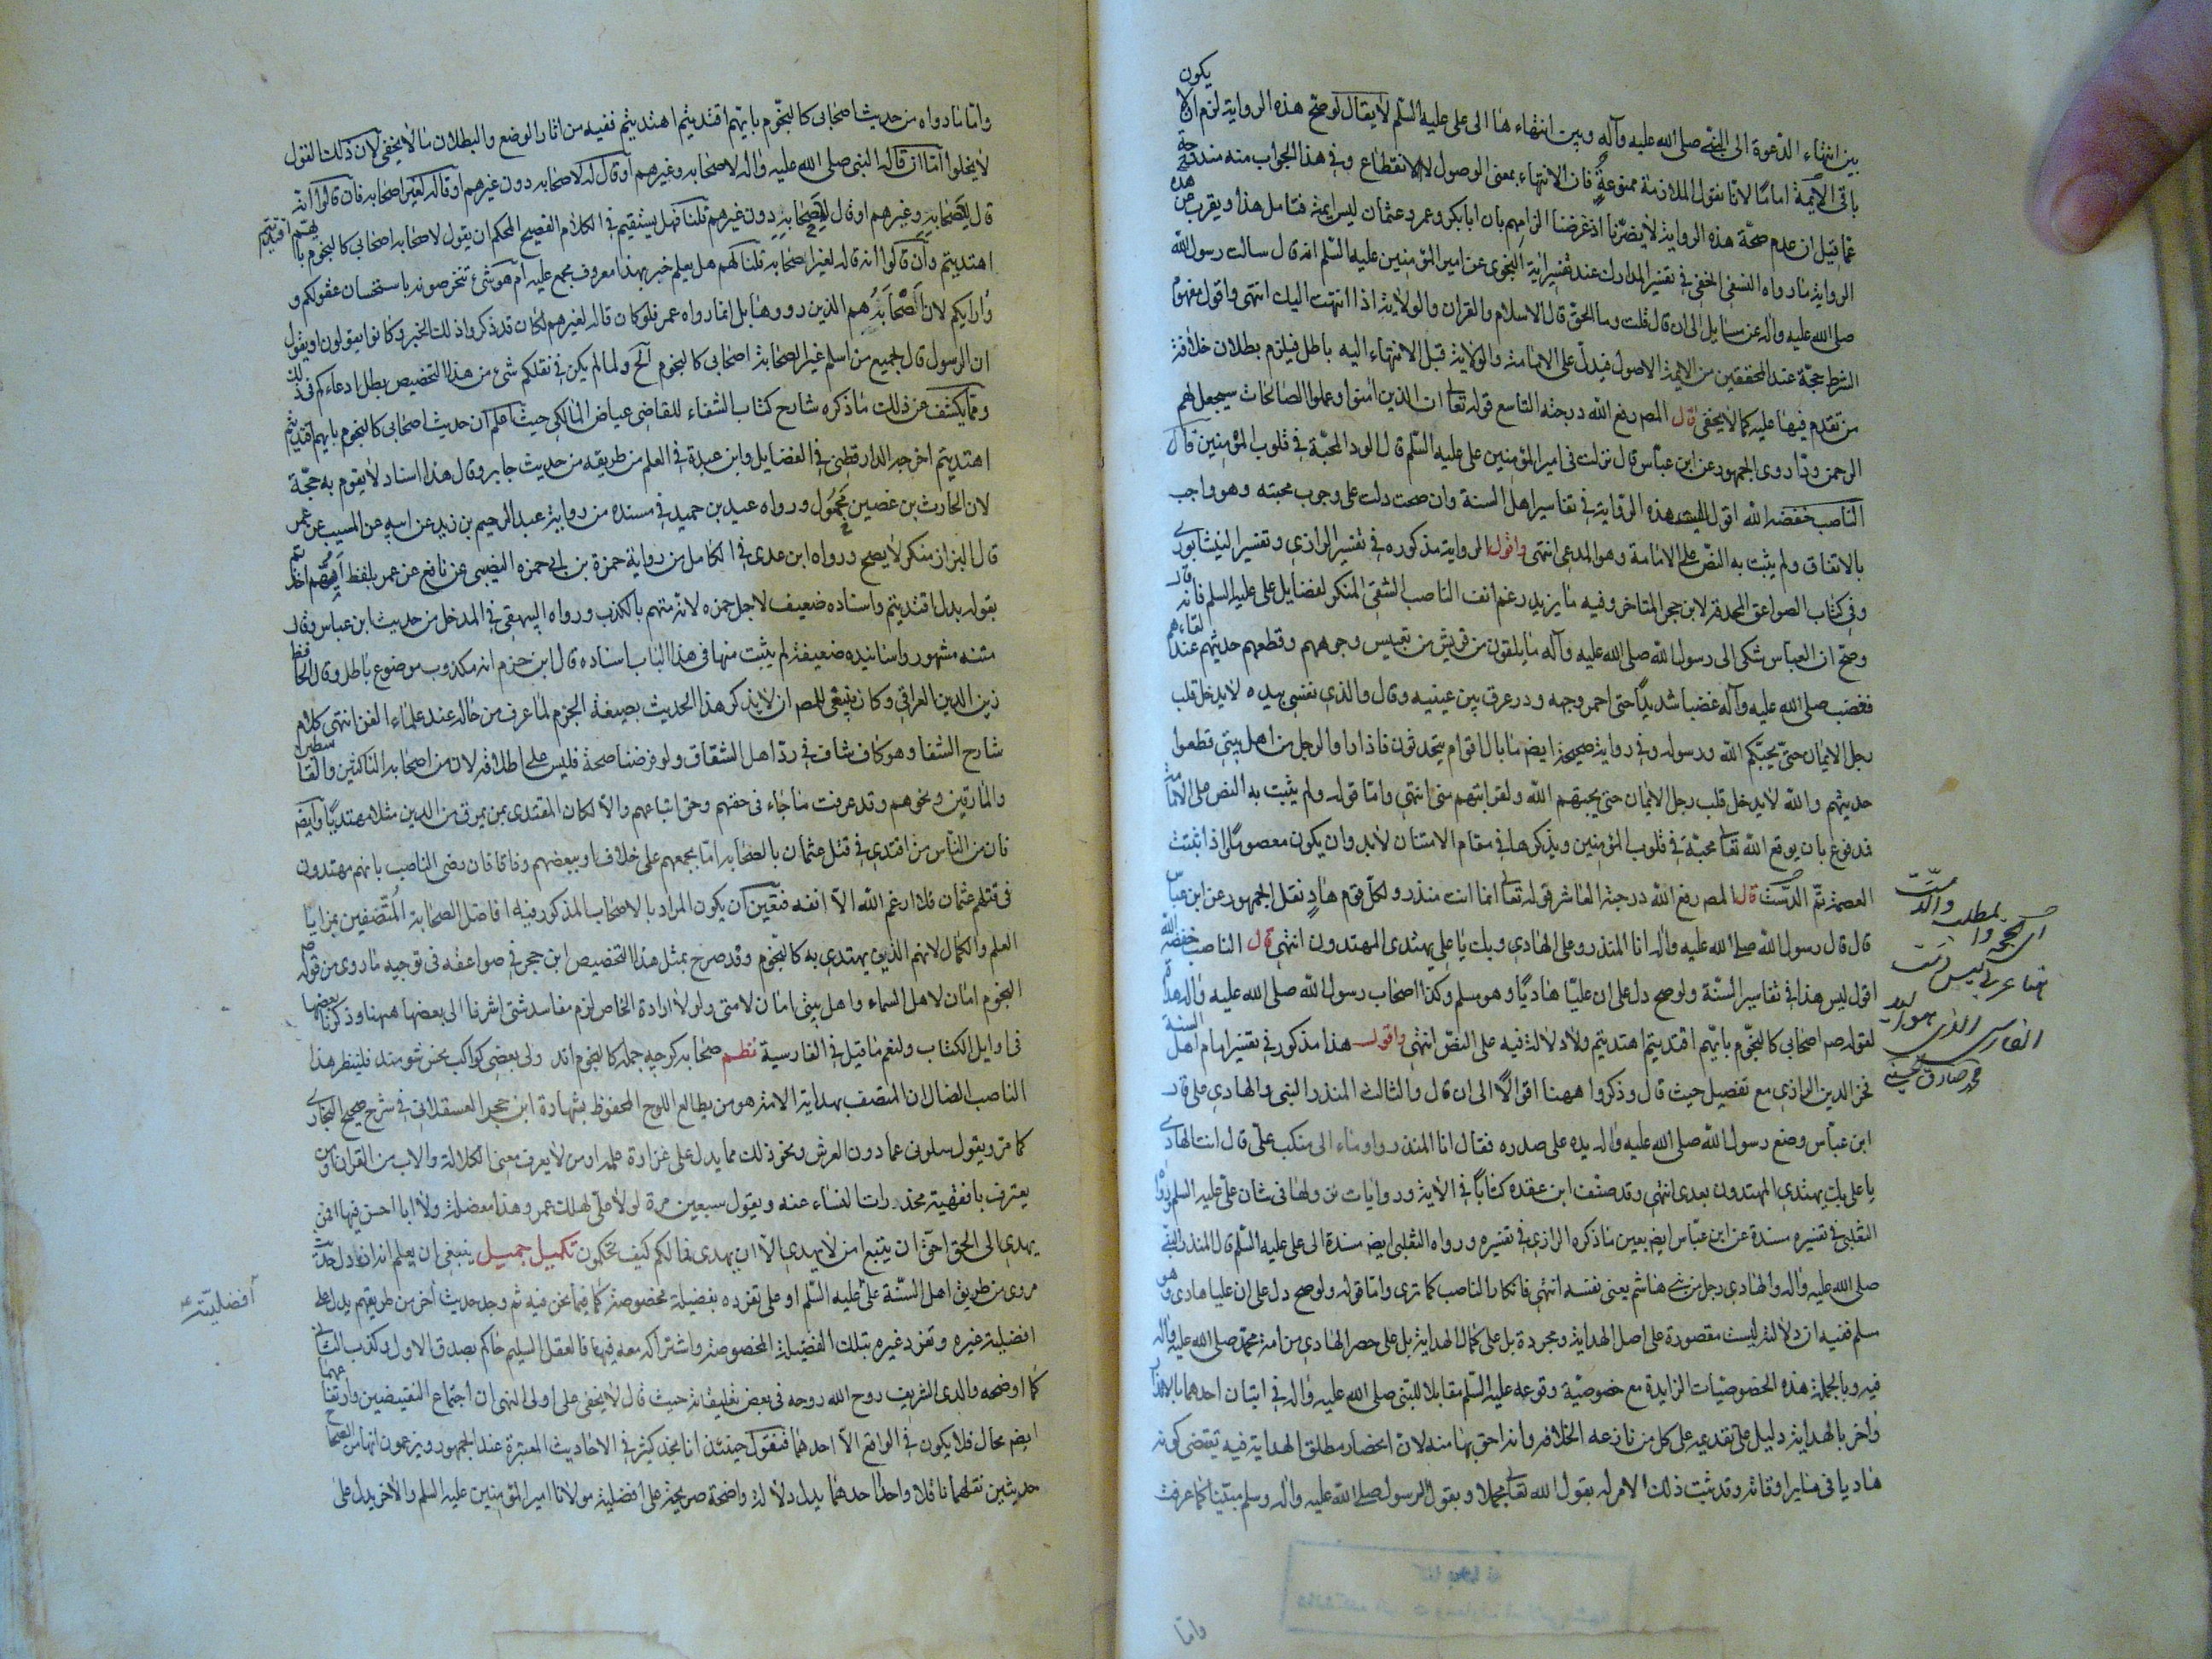 يكون
بين انتهاء الدعوة الى النبي صلى الله عليه وآله وبين انتهاءها الى على عليه السلم لا يقال لو صح هذه الرواية لزم ان لا
باقى الائمة اماما لانا نقول الملازمة ممنوعة فان الانتهاء بمعنى الوصول لا الانقطاع وفى هذا الجواب منه مندوحة
عما قيل ان عدم صحة هذه الرواية لا يضرنا اذ غرضنا الزامهم بان ابا بكر وعمر وعثمان ليس ايمة فتامل هذا ويقرب من هذه
الرواية ما رواه النسفى الحنفى فى تفسير المدارك عند تفسير اية النجوى عن امير المؤمنين عليه السلم انه قال سالت رسول الله
صلى الله عليه وآله عن مسايل الى ان قال قلت وما الحق قال الاسلام والقران والولاية اذا انتهت اليك انتهى واقول مفهوم
الشرط حجة عند المحققين من الايمة الاصول فيدل على الامامة والولاية قبل الانتهاء اليه باطل فيلزم بطلان خلافة
من تقدم فيها عليه كما لا يخفى قال المصر رفع الله درجته التاسع قوله تعالى ان الذين امنوا وعملوا الصالحات سيجعل لهم
الرحمن ودا روى الجمهور عن ابن عباس قال نزلت فى امير المؤمنين على عليه السلم قال الود المحبة فى قلوب المؤمنين قال
الناصب خفضه الله اقول ليست هذه الرواية فى تفاسير اهل السنة وان صحت دلت على وجوب محبته وهو واجب
بالاتفاق ولم يثبت به النص على الامامة وهو المدعى انتهى واقول الرواية مذكوره فى تفسير الرازى وتفسير النيشابورى
وفى كتاب الصواعق المحرقة لابن حجر المتاخر وفيه ما يزيد رغم انف الناصب الشقى المنكر لفضايل على عليه السلم فانه قال
وصح ان العباس شكى الى رسول الله صلى الله عليه وآله ما يلقون من قريش من تعبيس وجوههم وقطعهم حديثهم عند لقاءهم
فغضب صلى الله عليه وآله غضبا شديدا حتى احمر وجهه ودر عرق بين عينيه وقال والذى نفسى بيده لا يدخل قلب
رجل الايمان حتى يحبكم الله ورسوله وفى رواية صحيحة ايضا ما بال اقوام يتحدثون فاذا راوا الرجل من اهل بيتى قطعوا
حديثهم والله لا يدخل قلب رجل الايمان حتى يحبهم الله ولقرابتهم منى انتهى واما قوله ولم يثبت به النص على الامامة
فمدفوع بان يوقع الله تعا محبة فى قلوب المؤمنين ويذكرها فى مقام الامتنان لابد وان يكون معصوما اذا ثبتت
العصمة تم الدست قال المصر رفع الله درجته العاشر قوله تعالى انما انت منذر ولكل قوم هاد نقل الجمهور عن ابن عباس
قال قال رسول الله صلى الله عليه وآله انا المنذر وعلى الهادى وبك يا على يهتدى المهتدون انتهى قال الناصب خفضه الله
اقول ليس هذا فى تفاسير السنة ولو صح دل على ان عليا هاديا وهو مسلم وكذا اصحاب رسول الله صلى الله عليه وآله هداة
لقوله ص اصحابى كالنجوم بايهم اقتديتم اهتديتم ولا دلالة فيه على النص انتهى واقول هذا مذكور فى تفسير امام اهل السنة
فخر الدين الرازى مع تفصيل حيث قال وذكروا ههنا اقوالا الى ان قال والثالث المنذر النبى والهادى على قال
ابن عباس وضع رسول الله صلى الله عليه وآله يده على صدره فقال انا المنذر واوماء الى منكب على قال انت الهادى
يا على بك يهتدى المهتدون بعدى انتهى وقد صنف ابن عقده كتابا فى الاية وروايات نزولها فى شان على عليه السلم ورواه
الثعلبى فى تفسيره مسندة عن ابن عباس ايضا بعين ما ذكره الرازى فى تفسيره ورواه الثعلبى ايضا مسندة الى على عليه السلم قال المنذر النبى
صلى الله عليه وآله والهادى رجل من بنى هاشم يعنى نفسه انتهى فانكار الناصب كما ترى واما قوله ولو صح دل على ان عليا هادى وهو
مسلم ففيه ان دلالته ليست مقصورة على اصل الهداية ومجردة بل على كمال الهداية بل على حصر الهادى من امة محمد صلى الله عليه وآله
فيه وبالجملة هذه الخصوصيات الزايدة مع خصوصية وقوعه عليه السلم مقابلا للنبى صلى الله عليه وآله فى اتيان احدهما بالانذار
واخر بالهداية دليل على تقديمه على كل من نازعه الخلافه وانه احق بها منه لان انحصار مطلق الهداية فيه تقتضى كونه
هاديا فى ساير اوقاته وقد ثبت ذلك الامر له بقول الله تعالى مجملا وبقول الرسول صلى الله عليه وآله وسلم مبينا كما عرفت
واما
محمد صادق الحسينى
واما ما رواه من حديث اصحابى كالنجوم بايهم اقتديتم اهتديتم ففيه من اثار الوضع والبطلان ما لا يخفى لان ذلك القول
لا يخلو اما ان قاله النبى صلى الله عليه وآله لاصحابه وغيرهم او قاله لاصحابه دون غيرهم او قاله لغير اصحابه فان قالوا انه
قال لاصحابه وغيرهم او قال لاصحابه دون غيرهم قلنا فهل يستقيم فى الكلام الفصيح المحكم ان يقول لاصحابه اصحابى كالنجوم بايهم اقتديتم
اهتديتم وان قالوا انه قاله لغير اصحابه قلنا لهم هل يعلم خبر بهذا معروف مجمع عليه ام هو شىء تتخرصونه باستحسان عقولكم و
وارايكم لان اصحابه هم الذين رووها بل انما رواه عمر فلو كان قاله لغيرهم لكان قد ذكروا ذلك الخبر وكانوا يقولون او يقول
ان الرسول قال لجميع من اسلم غير الصحابة اصحابى كالنجوم الخ ولما لم يكن فى نقلكم شىء من هذا التخصيص بطل ادعاءكم فى ذلك
ومما يكشف عن ذلك ما ذكره شارح كتاب الشفاء للقاضى عياض المالكى حيث اعلم ان حديث اصحابى كالنجوم بايهم اقتديتم
اهتديتم اخرجه الدارقطنى فى الفضايل وابن عبدة فى العلم من طريقه من حديث جابر وقال هذا اسناد لا يقوم به حجة
لان الحارث بن غصين مجهول ورواه عبد بن حميد فى مسنده من رواية عبد الرحيم بن زيد عن ابيه عن المسيب عن عمر
قال البزاز منكر لا يصح ورواه ابن عدى فى الكامل من رواية حمزة بن ابى حمزه النصيبى عن نافع عن عمر بلفظ ايهم اخذتم
بقوله بدل اقتديتم واسناده ضعيف لاجل حمزه لانه متهم بالكذب ورواه البيهقى فى المدخل من حديث ابن عباس وقال
متنه مشهور واسانيده ضعيفة لم يثبت منها فى هذا الباب اسناده قال ابن حزم انه مكذوب موضوع باطل وقال الحافظ
زين الدين العراقى وكان ينبغى للمصر ان لا يذكر هذا الحديث بصيغة الجزم لما عرف من حاله عند علماء الفن انتهى كلام
شارح الشفا وهو كاف شاف فى رد اهل الشقاق ولو فرضنا صحة فليس على اطلاقه لان من اصحابه الناكثين والقاسطين
والمارقين ونحوهم وقد عرفت ما جاء فى حقهم وحق اتباعهم والا لكان المقتدى بمن يمرق من الدين مثلا مهتديا وايضا
فان من الناس من اقتدى فى قتل عثمان بالصحابه اما بجمعهم على خلاف او ببعضهم وفاقا فان رضى الناصب بانهم مهتدون
فى قتلهم عثمان فلا ارغم الله الا انفه فتعين ان يكون المراد بالاصحاب المذكور فيه افاضل الصحابة المتصفين بمزايا
العلم والكمال لانهم الذين يهتدى به كالنجوم وقد صرح بمثل هذا التخصيص ابن حجر فى صواعقه فى توجيه ما روى من قوله ص
النجوم امان لاهل السماء واهل بيتى امان لامتى ولولا ارادة الخاص لزم مفاسد شتى اشرفنا الى بعضها ههنا وذكرنا بعضها
فى اوايل الكتاب ولنعم ما قيل فى الفارسية نظم صحابه كرچه جمله كالنجوم اند ولى بعضى كواكب نحس شومند فلينظر هذا
الناصب الضال ان المتصف بهداية الامة هو من يطالع اللوح المحفوظ بشهادة ابن حجر العسقلانى فى شرح صحيح البخارى
كما مر ويقول سلونى عما دون العرش ونحو ذلك مما يدل على غزارة علمه او من لا يعرف معنى الكلالة والاب من القران ومن
يعترف بافقهية مخدرات النساء عنه ويقول سبعين مرة لولا على لهلك عمر وهذا معضلة ولا ابا الحسن فيها افمن
يهدى الى الحق احق ان يتبع امن لا يهدى الا ان يهدى فما لكم كيف تحكمون تكميل جميل ينبغى ان يعلم انه ان دل حديث
مروى من طريق اهل السنة على عليه السلم او على تفرده بفضيلة مخصوصة كما فيما نحن فيه ثم وجد حديث اخر من طريقهم يدل على
افضلية غيره وتفرد غيره بتلك الفضيلة المخصوصة واشتراكه معه فيها فالعقل السليم حاكم بصدق الاول وكذب الثانى
كما اوضحه والدى الشريف روح الله روحه فى بعض تعليقاته حيث قال لا يخفى على اولى النهى ان اجتماع النقيضين وارتفاعهما
ايضا محال فلا يكون فى الواقع الا احدهما فنقول حينئذ انا نجد كثير فى الاحاديث المعتبرة عند الجمهور ويزعمون انها من الصحاح
حديثين نقلهما ناقلا واحدا احدهما يدل دلالة واضحة صريحة على افضلية مولانا امير المؤمنين عليه السلم والاخر يدل على
أفضليته